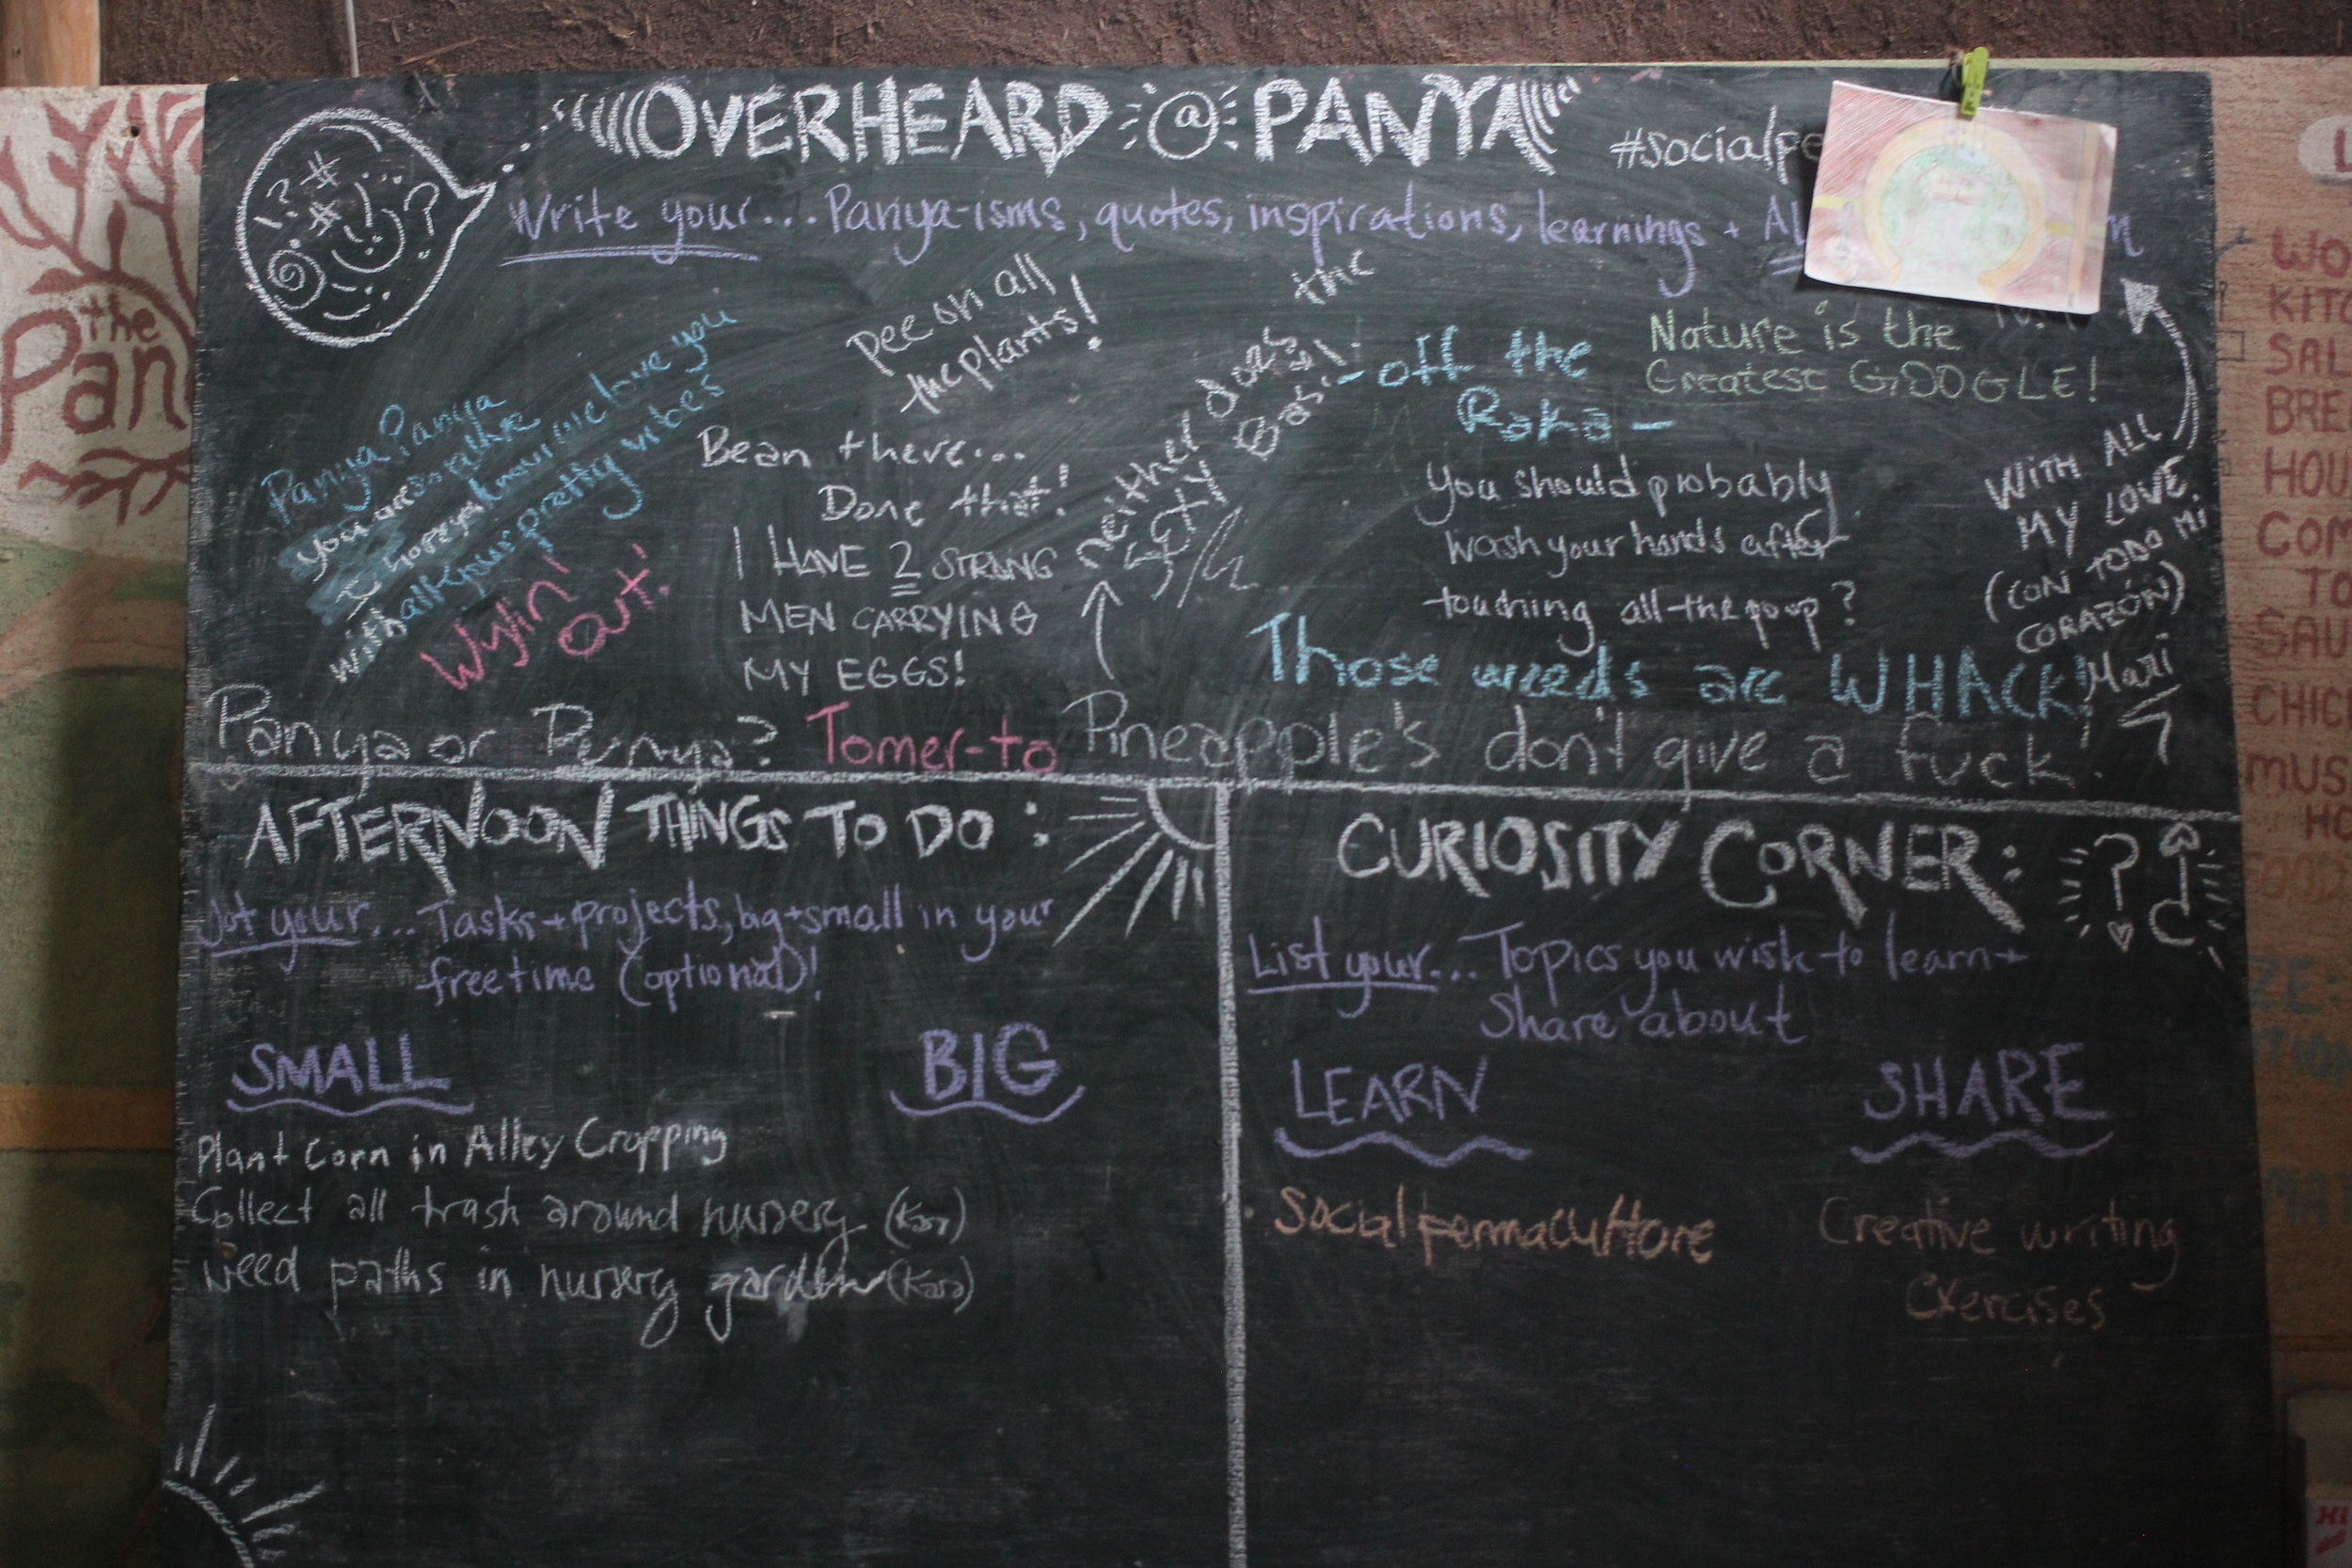 OVERHEARD @ PANYA
#socialpe
Write your... Panya-isms, quotes, inspirations, learnings +
pee on all
the plants!
Panya Panya
you are so
I hope you know we love you
with all your pretty vibes
Wylin'
Out!
Bean there...
Done that!
I HAVE 2 STRONG
MEN CARRYING
MY EGGS!
neither does the
Basil!
- off the
Raka -
Nature is the
Greatest GOOGLE!
You should probably
wash your hands after
touching all the poop?
WITH ALL
MY LOVE.
(CON TODO MI
CORAZÓN)
Mari
Those weeds are WHACK!
Panya or Punya? Tomer-to Pineapple's don't give a fuck!
AFTERNOON THINGS TO DO:
Jot your... Tasks + projects, big + small in your
free time (optional)!
SMALL
BIG
Plant Corn in Alley Cropping
Collect all trash around nursery
Weed paths in nursery garden (Kara)
CURIOSITY CORNER:
List your... Topics you wish to learn +
Share about
LEARN
SHARE
Social permaculture
Creative writing
Exercises
the
Pan
WO
KIT
SAL
BRE
HOU
COM
TO
SAU
CHIC
MUS
HO
FOOD
ZE:
Hi